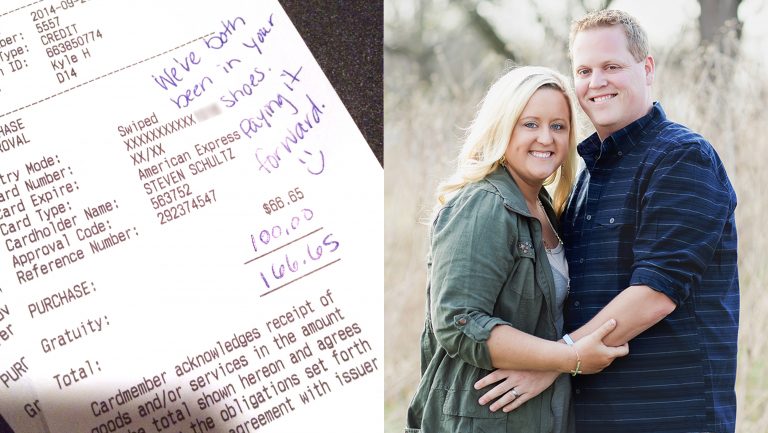 2014-09-2
5557
Type: CREDIT
ID: 663850774
Kyle H
D14
We've both
been in your
shoes.
Paying it
forward.
Mode: Swiped
Number: XXXXXXXXXXX
Card Expire: XX/XX
Card Type: American Express
Cardholder Name: STEVEN SCHULTZ
Approval Code: 563752
Reference Number: 292374547
PURCHASE: $66.65
Gratuity: 100.00
Total: 166.65
Cardmember acknowledges receipt of
goods and/or services in the amount
the total shown hereon and agrees
the obligations set forth
agreement with issuer